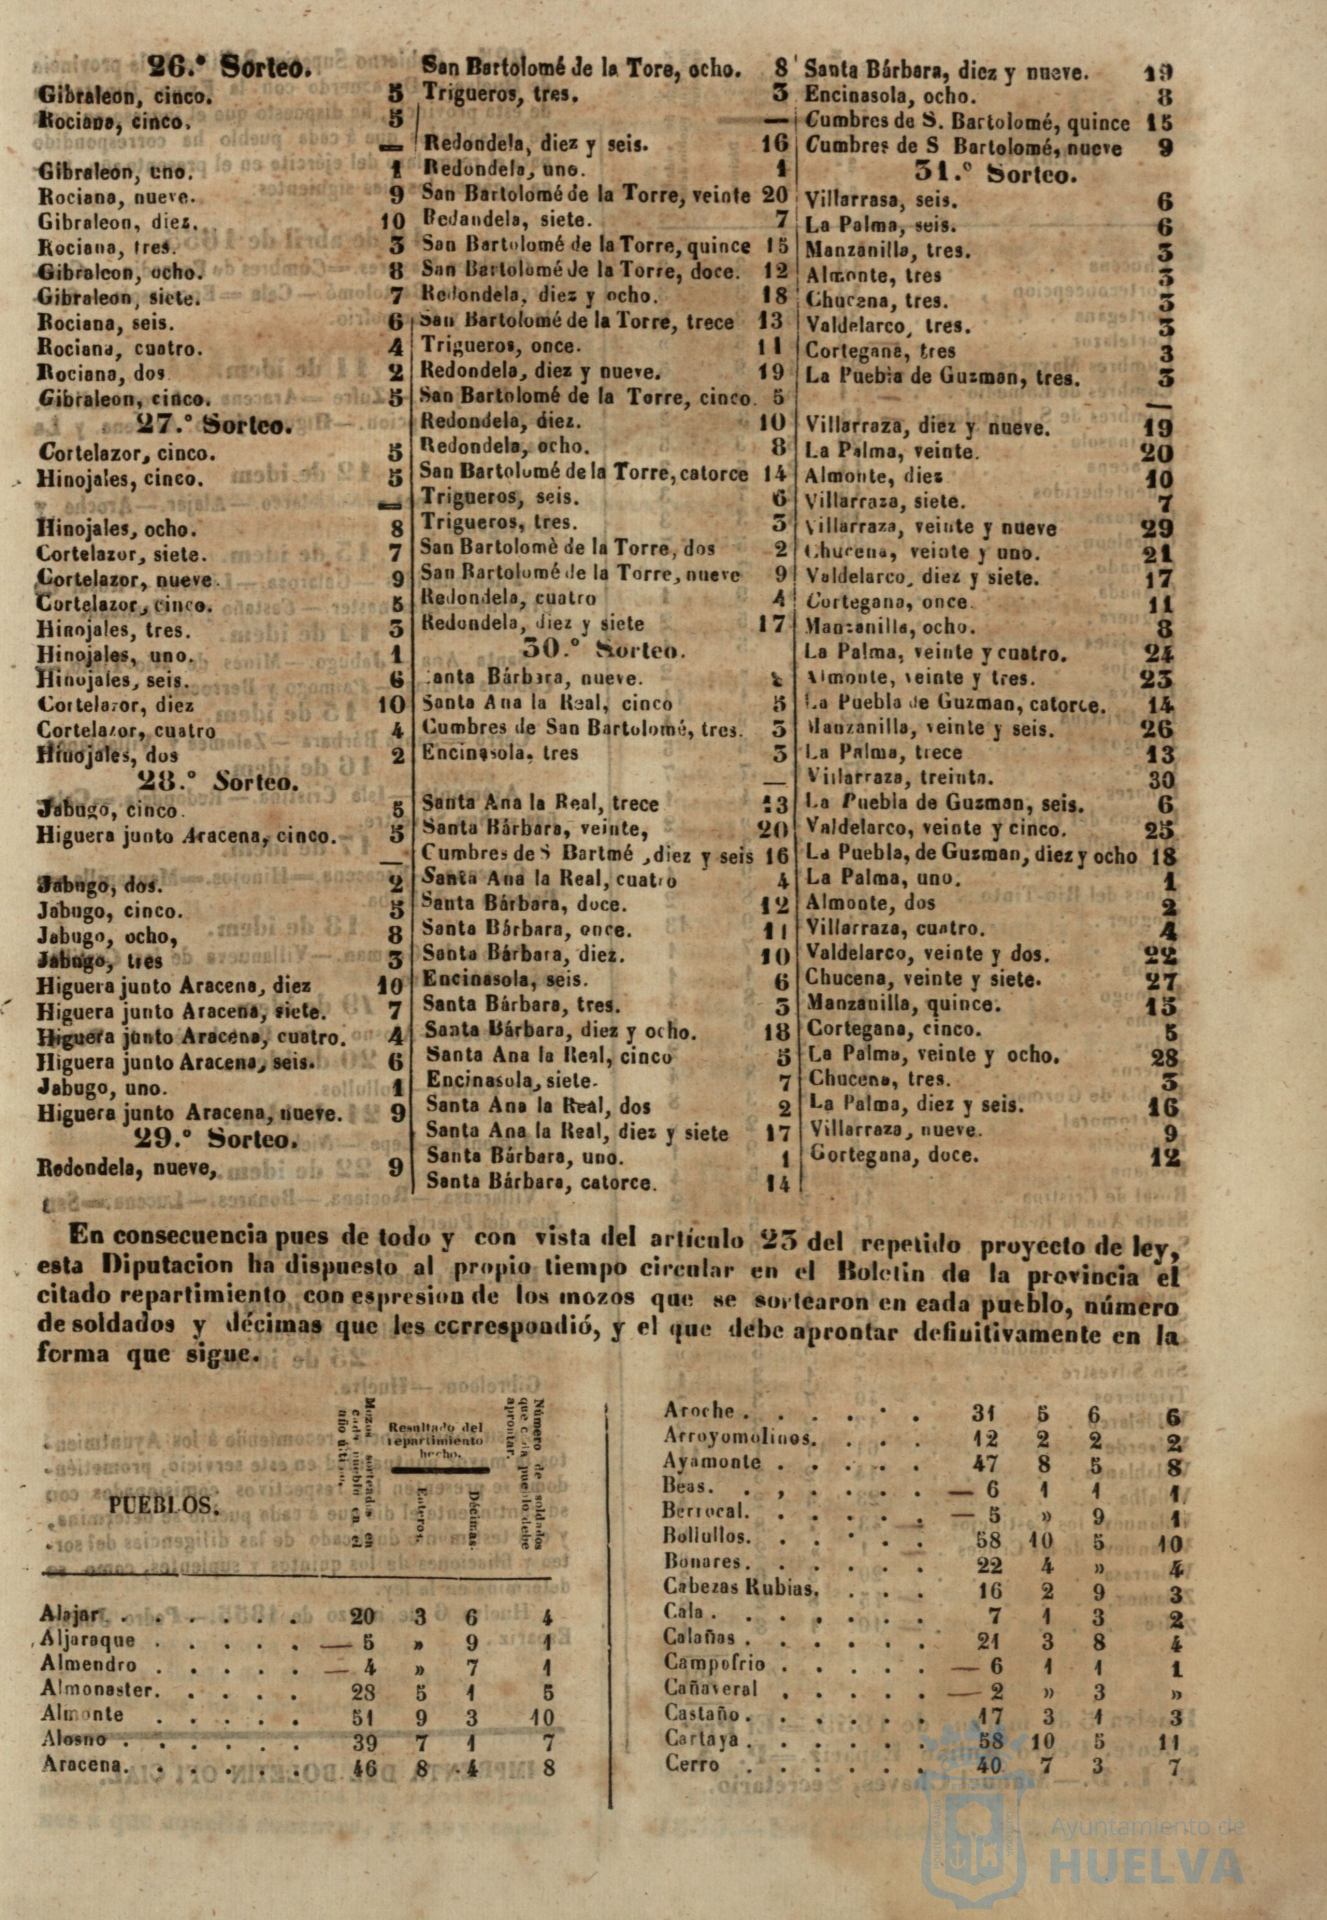 26.º Sorteo.
Gibraleon, cinco. 5
Rociana, cinco. 5
Gibraleon, uno. 1
Rociana, nueve. 9
Gibraleon, diez. 10
Rociana, tres. 3
Gibraleon, ocho. 8
Gibraleon, siete. 7
Rociana, seis. 6
Rociana, cuatro. 4
Rociana, dos 2
Gibraleon, cinco. 5
27.º Sorteo.
Cortelazor, cinco. 5
Hinojales, cinco. 5
Hinojales, ocho. 8
Cortelazor, siete. 7
Cortelazor, nueve. 9
Cortelazor, cinco. 5
Hinojales, tres. 3
Hinojales, uno. 1
Hinojales, seis. 6
Cortelazor, diez 10
Cortelazor, cuatro 4
Hinojales, dos 2
28.º Sorteo.
Jabugo, cinco. 5
Higuera junto Aracena, cinco. 5
Jabugo, dos. 2
Jabugo, cinco. 5
Jabugo, ocho, 8
Jabugo, tres 3
Higuera junto Aracena, diez 10
Higuera junto Aracena, siete. 7
Higuera junto Aracena, cuatro. 4
Higuera junto Aracena, seis. 6
Jabugo, uno. 1
Higuera junto Aracena, nueve. 9
29.º Sorteo.
Redondela, nueve, 9
San Bartolomé de la Tore, ocho. 8
Trigueros, tres. 3
Redondela, diez y seis. 16
Redondela, uno. 1
San Bartolomé de la Torre, veinte 20
Redandela, siete. 7
San Bartolomé de la Torre, quince 15
San Bartolomé de la Torre, doce. 12
Redondela, diez y ocho. 18
San Bartolomé de la Torre, trece 13
Trigueros, once. 11
Redondela, diez y nueve. 19
San Bartolomé de la Torre, cinco. 5
Redondela, diez. 10
Redondela, ocho. 8
San Bartolomé de la Torre, catorce 14
Trigueros, seis. 6
Trigueros, tres. 3
San Bartolomè de la Torre, dos 2
San Bartolomé de la Torre, nueve 9
Redondela, cuatro 4
Redondela, diez y siete 17
30.º Sorteo.
anta Bárbara, nueve.
Santa Ana la Real, cinco 5
Cumbres de San Bartolomé, tres. 3
Encinasola, tres 3
Santa Ana la Real, trece 13
Santa Bárbara, veinte, 20
Cumbres de S Bartmé, diez y seis 16
Santa Ana la Real, cuatro 4
Santa Bárbara, doce. 12
Santa Bárbara, once. 11
Santa Bárbara, diez. 10
Encinasola, seis. 6
Santa Bárbara, tres. 3
Santa Bárbara, diez y ocho. 18
Santa Ana la Real, cinco 5
Encinasola, siete. 7
Santa Ana la Real, dos 2
Santa Ana la Real, diez y siete 17
Santa Bárbara, uno. 1
Santa Bárbara, catorce. 14
Santa Bárbara, diez y nueve. 19
Encinasola, ocho. 8
Cumbres de S. Bartolomé, quince 15
Cumbres de S Bartolomé, nueve 9
31.º Sorteo.
Villarrasa, seis. 6
La Palma, seis. 6
Manzanilla, tres. 3
Almonte, tres 3
Chucena, tres. 3
Valdelarco, tres. 3
Cortegana, tres 3
La Puebla de Guzman, tres. 3
Villarraza, diez y nueve. 19
La Palma, veinte. 20
Almonte, diez 10
Villarraza, siete. 7
Villarraza, veinte y nueve 29
Chucena, veinte y uno. 21
Valdelarco, diez y siete. 17
Cortegana, once. 11
Manzanilla, ocho. 8
La Palma, veinte y cuatro. 24
Almonte, veinte y tres. 23
La Puebla de Guzman, catorce. 14
Manzanilla, veinte y seis. 26
La Palma, trece 13
Villarraza, treinta. 30
La Puebla de Guzman, seis. 6
Valdelarco, veinte y cinco. 25
La Puebla, de Guzman, diez y ocho 18
La Palma, uno. 1
Almonte, dos 2
Villarraza, cuatro. 4
Valdelarco, veinte y dos. 22
Chucena, veinte y siete. 27
Manzanilla, quince. 15
Cortegana, cinco. 5
La Palma, veinte y ocho. 28
Chucena, tres. 3
La Palma, diez y seis. 16
Villarraza, nueve. 9
Cortegana, doce. 12
En consecuencia pues de todo y con vista del artículo 23 del repetido proyecto de ley,
esta Diputacion ha dispuesto al propio tiempo circular en el Boletin de la provincia el
citado repartimiento con espresion de los mozos que se sortearon en cada pueblo, número
de soldados y décimas que les correspondió, y el que debe aprontar definitivamente en la
forma que sigue.
PUEBLOS.
Mozos sorteados en
cada pueblo en el
año último.
Resultado del
repartimiento
hecho.
Enteros.
Décimas.
Número de soldados
que cada pueblo debe
aprontar.
Alajar. . . . . . . 20 3 6 4
Aljaraque . . . . . — 5 » 9 1
Almendro . . . . . — 4 » 7 1
Almonaster. . . . . 28 5 1 5
Almonte . . . . . 51 9 3 10
Alosno . . . . . . 39 7 1 7
Aracena. . . . . . 46 8 4 8
Aroche . . . . . . 31 5 6 6
Arroyomolinos. . . . 12 2 2 2
Ayamonte . . . . . 47 8 5 8
Beas. . . . . . . — 6 1 1 1
Berrocal. . . . . . — 5 » 9 1
Bollullos. . . . . 58 10 5 10
Bonares. . . . . . 22 4 » 4
Cabezas Rubias. . . . 16 2 9 3
Cala . . . . . . . 7 1 3 2
Calañas . . . . . . 21 3 8 4
Campofrio . . . . . — 6 1 1 1
Cañaveral . . . . . — 2 » 3 »
Castaño . . . . . . 17 3 1 3
Cartaya . . . . . . 58 10 5 11
Cerro . . . . . . 40 7 3 7
Ayuntamiento de
HUELVA